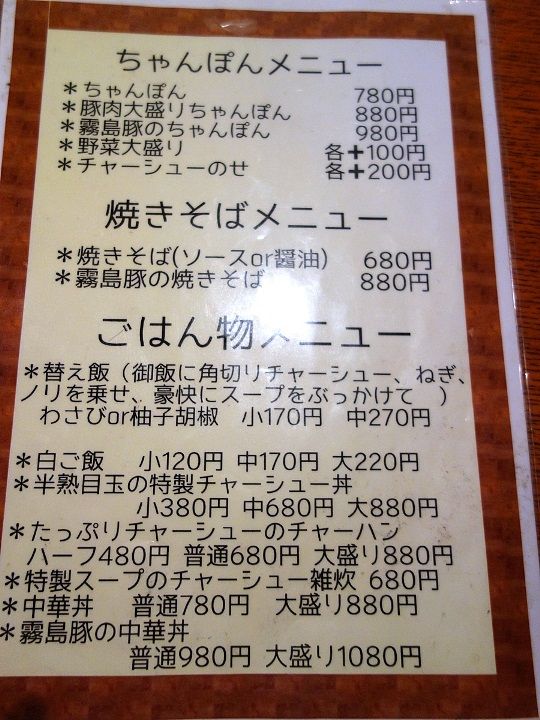 ちゃんぽんメニュー
＊ちゃんぽん 780円
＊豚肉大盛りちゃんぽん 880円
＊霧島豚のちゃんぽん 980円
＊野菜大盛り 各+100円
＊チャーシューのせ 各+200円
焼きそばメニュー
＊焼きそば(ソースor醤油) 680円
＊霧島豚の焼きそば 880円
ごはん物メニュー
＊替え飯（御飯に角切りチャーシュー、ねぎ、
ノリを乗せ、豪快にスープをぶっかけて ）
わさびor柚子胡椒 小170円 中270円
＊白ご飯 小120円 中170円 大220円
＊半熟目玉の特製チャーシュー丼
小380円 中680円 大880円
＊たっぷりチャーシューのチャーハン
ハーフ480円 普通680円 大盛り880円
＊特製スープのチャーシュー雑炊 680円
＊中華丼 普通780円 大盛り880円
＊霧島豚の中華丼
普通980円 大盛り1080円